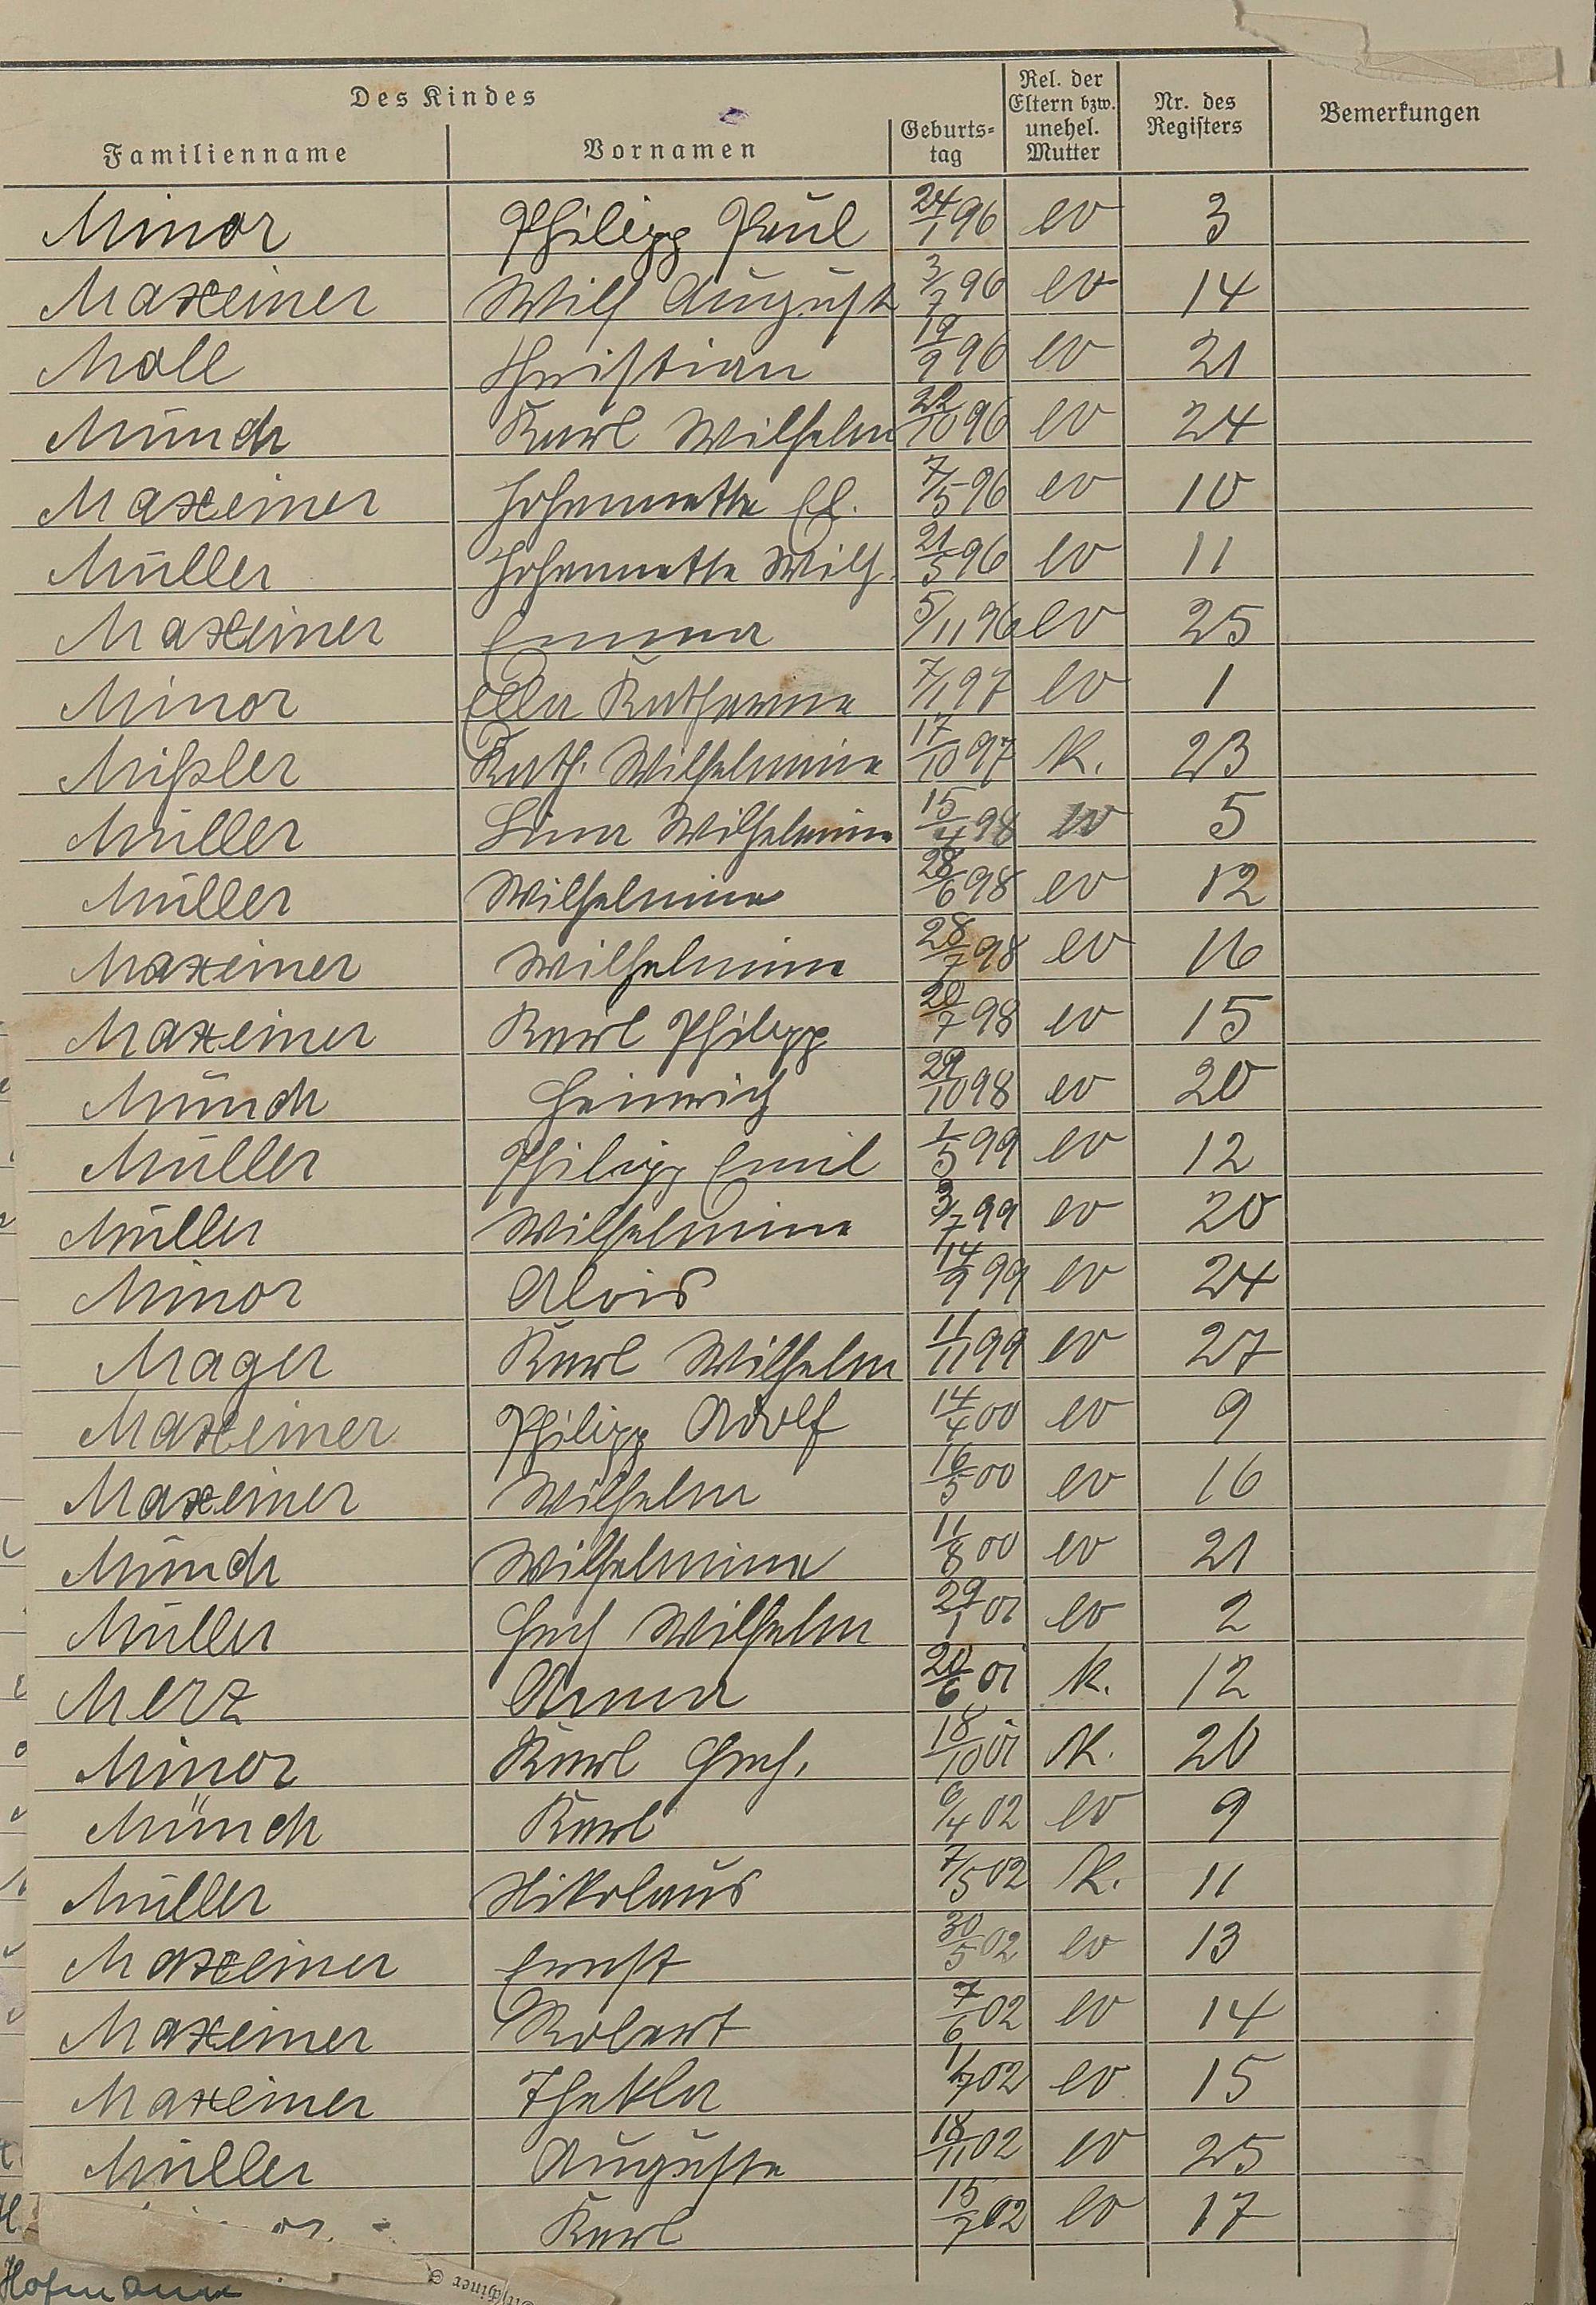 Des Kindes
Familienname Vornamen Geburts-tag Rel. der Eltern bzw. unehel. Mutter Nr. des Registers Bemerkungen
Minor Philipp Paul 24/1 96 ev 3
Maxeiner Wilh August 3/7 96 ev 14
Moll Christian 19/9 96 ev 21
Münch Karl Wilhelm 22/10 96 ev 24
Maxeiner Johannette El. 7/5 96 ev 10
Müller Johannette Wilh. 21/5 96 ev 11
Maxeiner Emma 5/11 96 ev 25
Minor Ella Katharina 7/1 97 ev 1
Mißler Kath. Wilhelmine 17/10 97 K. 23
Müller Lina Wilhelmine 15/4 98 ev 5
Müller Wilhelmine 28/6 98 ev 12
Maxeiner Wilhelmine 28/7 98 ev 16
Maxeiner Karl Philipp 20/7 98 ev 15
Münch Heinrich 29/10 98 ev 20
Müller Philipp Emil 1/5 99 ev 12
Müller Wilhelmine 3/7 99 ev 20
Minor Alois 14/9 99 ev 24
Mager Karl Wilhelm 11/11 99 ev 27
Maxeiner Philipp Adolf 14/4 00 ev 9
Maxeiner Wilhelm 16/5 00 ev 16
Münch Wilhelmine 11/8 00 ev 21
Müller Hch Wilhelm 29/1 01 ev 2
Merz Anna 20/6 01 K. 12
Minor Karl Hch. 18/10 01 K. 20
Münch Karl 6/4 02 ev 9
Müller Nikolaus 7/5 02 K. 11
Maxeiner Ernst 30/5 02 ev 13
Maxeiner Robert 7/6 02 ev 14
Maxeiner Thekla 1/7 02 ev 15
Müller Auguste 18/11 02 ev 25
Karl 15/7 02 ev 17
Hofmann